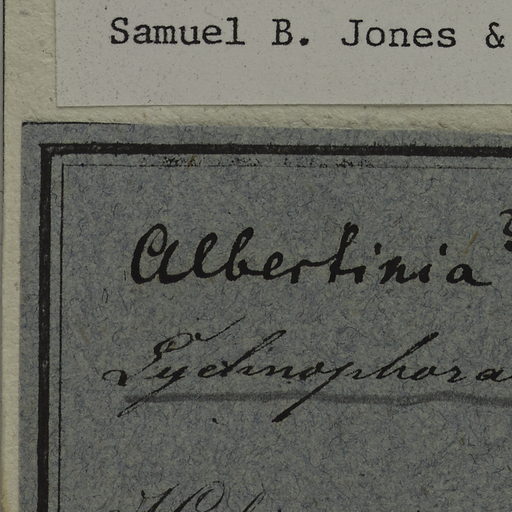 Samuel B. Jones &
Albertinia
Lychnophora